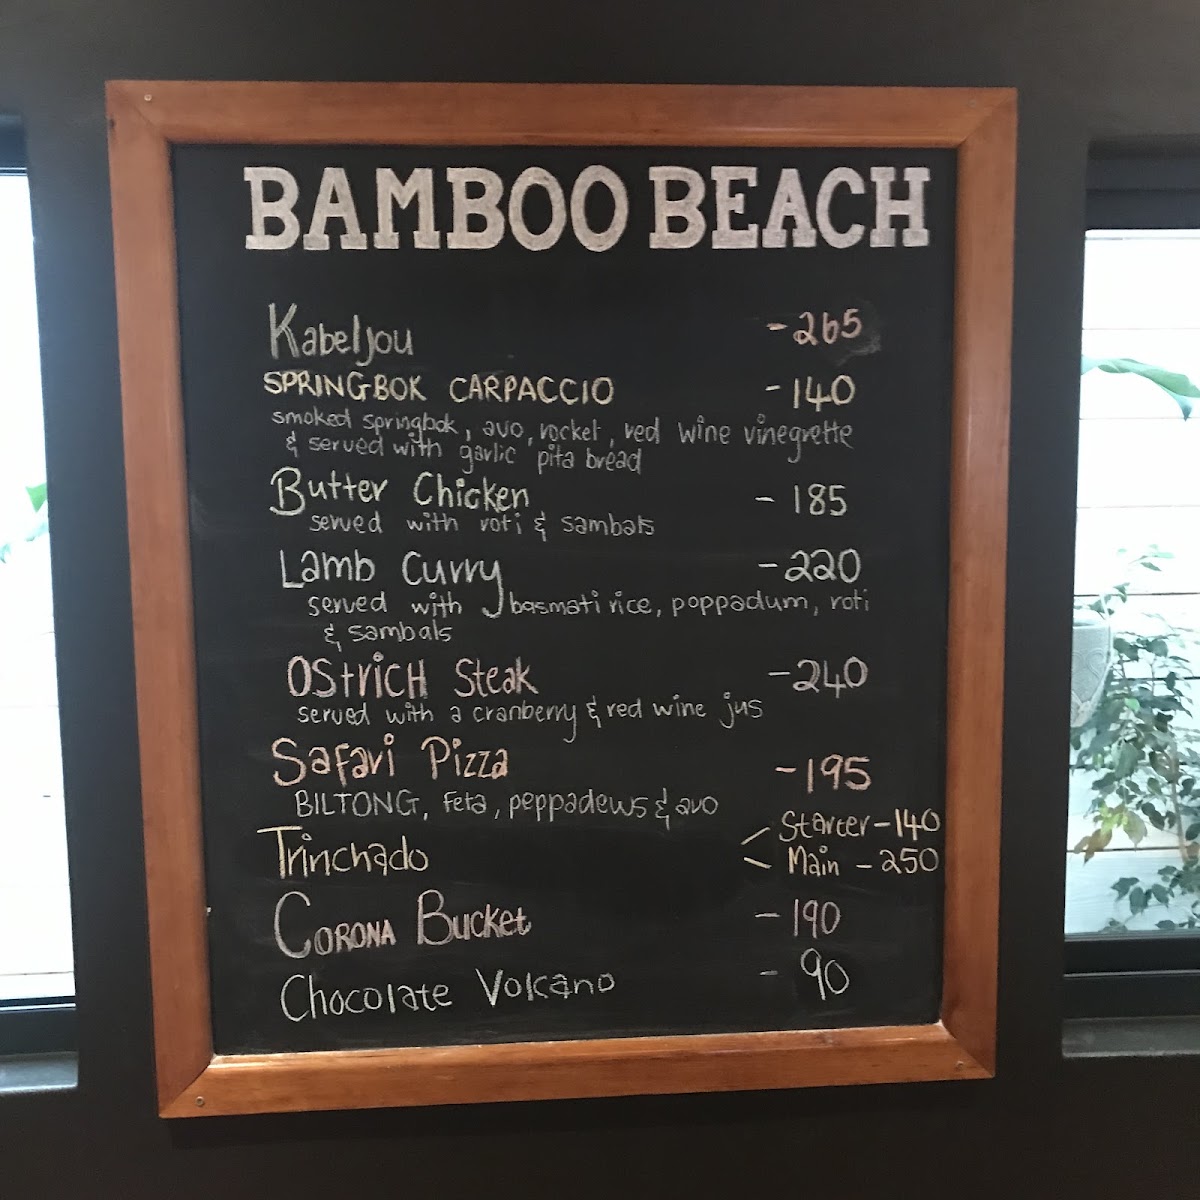 BAMBOO BEACH
Kabeljou - 265
SPRINGBOK CARPACCIO - 140
smoked springbok, avo, rocket, red wine vinegrette
& served with garlic pita bread
Butter Chicken - 185
served with roti & sambals
Lamb Curry - 220
served with basmati rice, poppadum, roti
& sambals
OStricH Steak - 240
served with a cranberry & red wine jus
Safari Pizza - 195
BILTONG, Feta, peppadews & avo
Starter - 140
Trinchado
Main - 250
CORONA Bucket - 190
Chocolate Volcano - 90